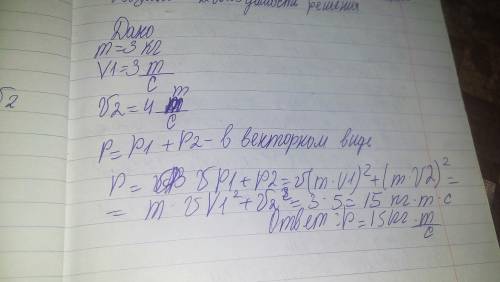 решения
Дано
m=3 кг
V1=3 m/c
V2
V2=4 m/c
P=P1+P2-в векторном виде
P= √P1+P2=√(m·V1)²+(m·V2)²=
= m·√V1²+V2²=3·5=15 кг·m·c
Ответ:P=15кг·m/c